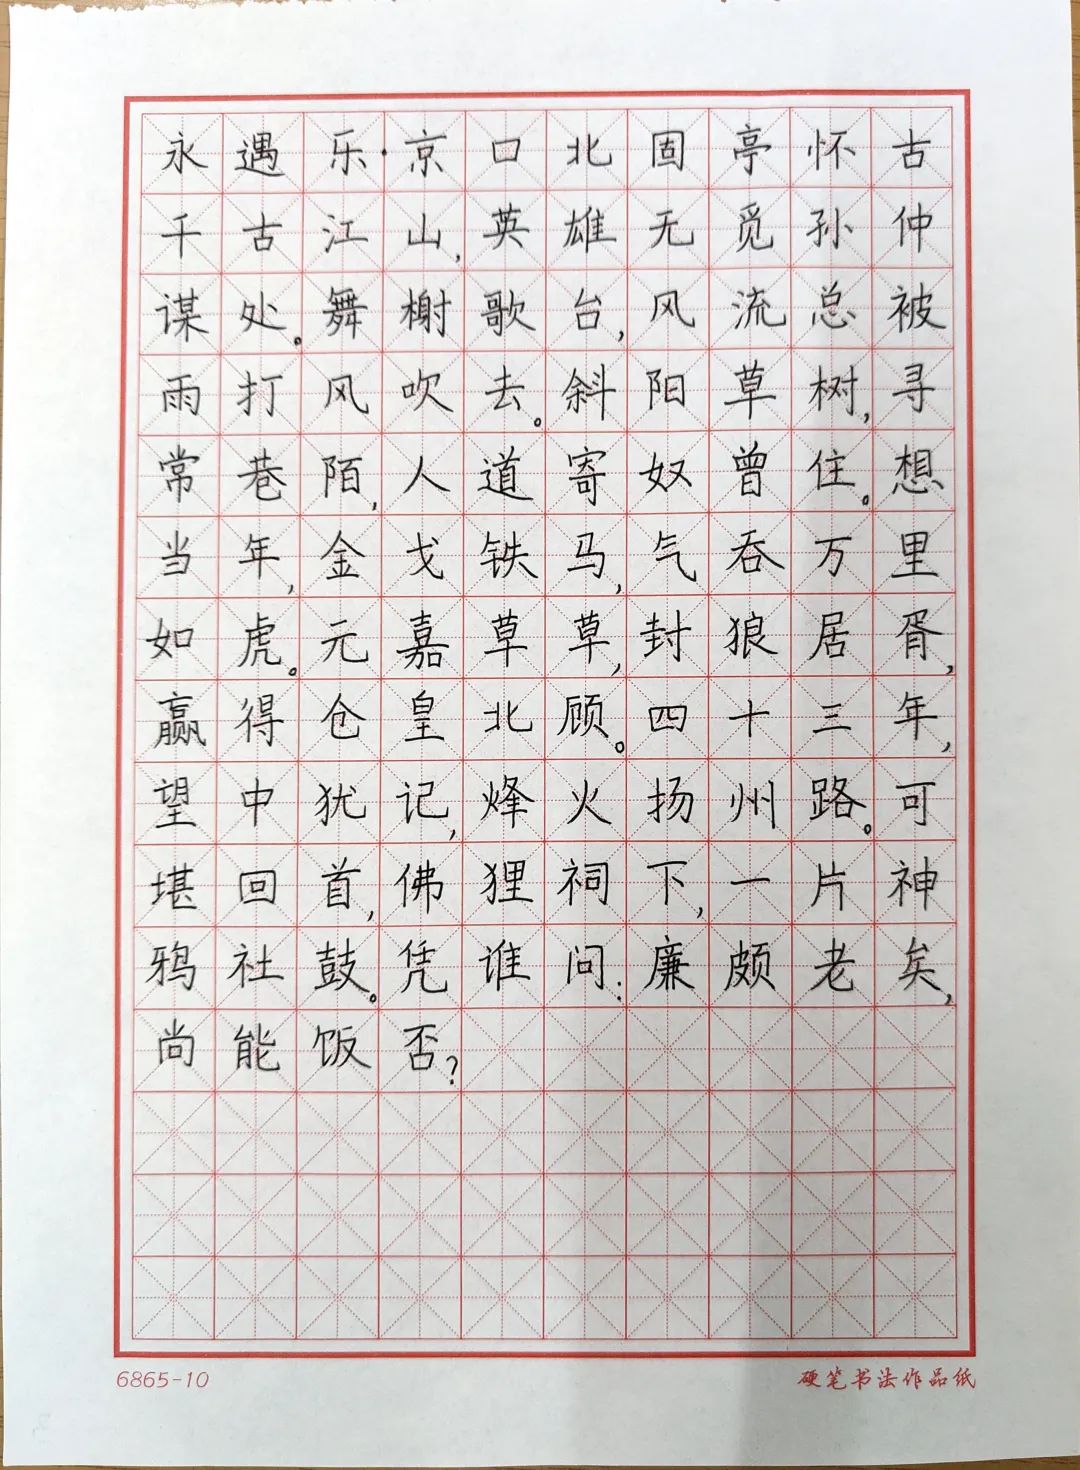 永遇乐·京口北固亭怀古
千古江山,英雄无觅孙仲
谋处。舞榭歌台,风流总被
雨打风吹去。斜阳草树,寻
常巷陌,人道寄奴曾住。想
当年,金戈铁马,气吞万里
如虎。元嘉草草,封狼居胥,
赢得仓皇北顾。四十三年,
望中犹记,烽火扬州路。可
堪回首,佛狸祠下,一片神
鸦社鼓。凭谁问:廉颇老矣,
尚能饭否?
6865-10
硬笔书法作品纸